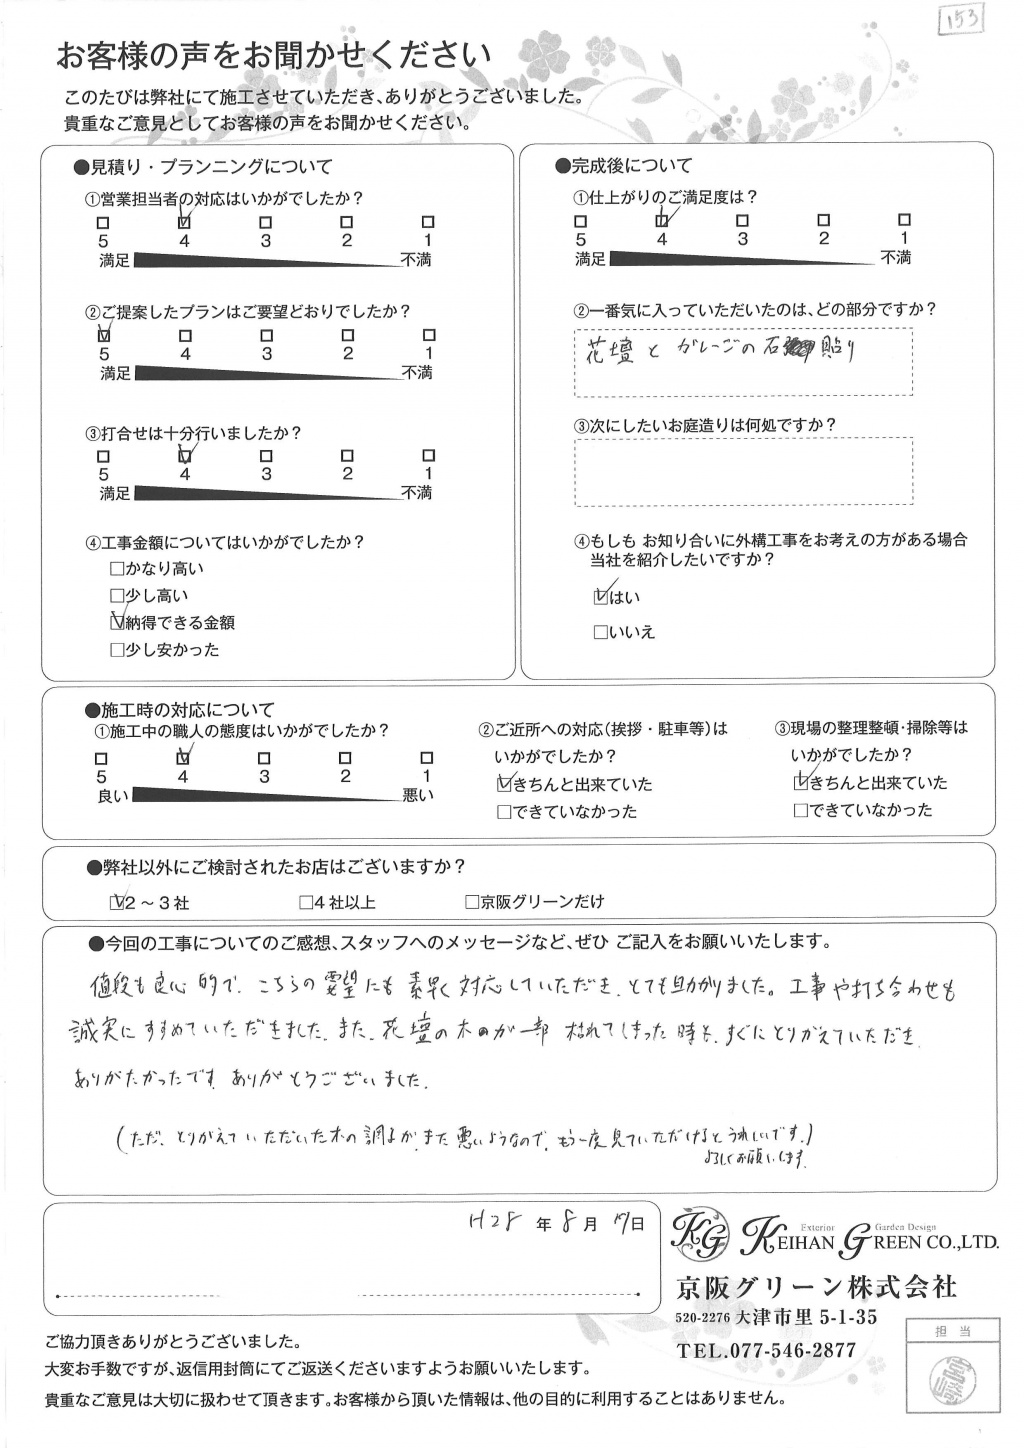 153
お客様の声をお聞かせください
このたびは弊社にて施工させていただき、ありがとうございました。
貴重なご意見としてお客様の声をお聞かせください。
●見積り・プランニングについて
①営業担当者の対応はいかがでしたか？
5 4 3 2 1
満足 不満
②ご提案したプランはご要望どおりでしたか？
5 4 3 2 1
満足 不満
③打合せは十分行いましたか？
5 4 3 2 1
満足 不満
④工事金額についてはいかがでしたか？
□かなり高い
□少し高い
☑納得できる金額
□少し安かった
●完成後について
①仕上がりのご満足度は？
5 4 3 2 1
満足 不満
②一番気に入っていただいたのは、どの部分ですか？
花壇と ガレージの石貼り
③次にしたいお庭造りは何処ですか？
④もしも お知り合いに外構工事をお考えの方がある場合
当社を紹介したいですか？
☑はい
□いいえ
●施工時の対応について
①施工中の職人の態度はいかがでしたか？
5 4 3 2 1
良い 悪い
②ご近所への対応（挨拶・駐車等）は
いかがでしたか？
☑きちんと出来ていた
□できていなかった
③現場の整理整頓・掃除等は
いかがでしたか？
☑きちんと出来ていた
□できていなかった
●弊社以外にご検討されたお店はございますか？
☑2～3社 □4社以上 □京阪グリーンだけ
●今回の工事についてのご感想、スタッフへのメッセージなど、ぜひ ご記入をお願いいたします。
値段も良心的で、こちらの要望にも素早く対応していただき、とても助かりました。工事や打ち合わせも
誠実にすすめていただきました。また、花壇の木が一部 枯れてしまった時も、すぐにとりかえていただき
ありがたかったです。ありがとうございました。
(ただ、とりかえていただいた木の調子が、また悪いようなので、もう一度見ていただけるとうれしいです。)
よろしくお願いします。
H28年 8月 日
KG KEIHAN GREEN CO.,LTD.
Exterior Garden Design
京阪グリーン株式会社
520-2276 大津市里 5-1-35
TEL.077-546-2877
担当
ご協力頂きありがとうございました。
大変お手数ですが、返信用封筒にてご返送くださいますようお願いいたします。
貴重なご意見は大切に扱わせて頂きます。お客様から頂いた情報は、他の目的に利用することはありません。